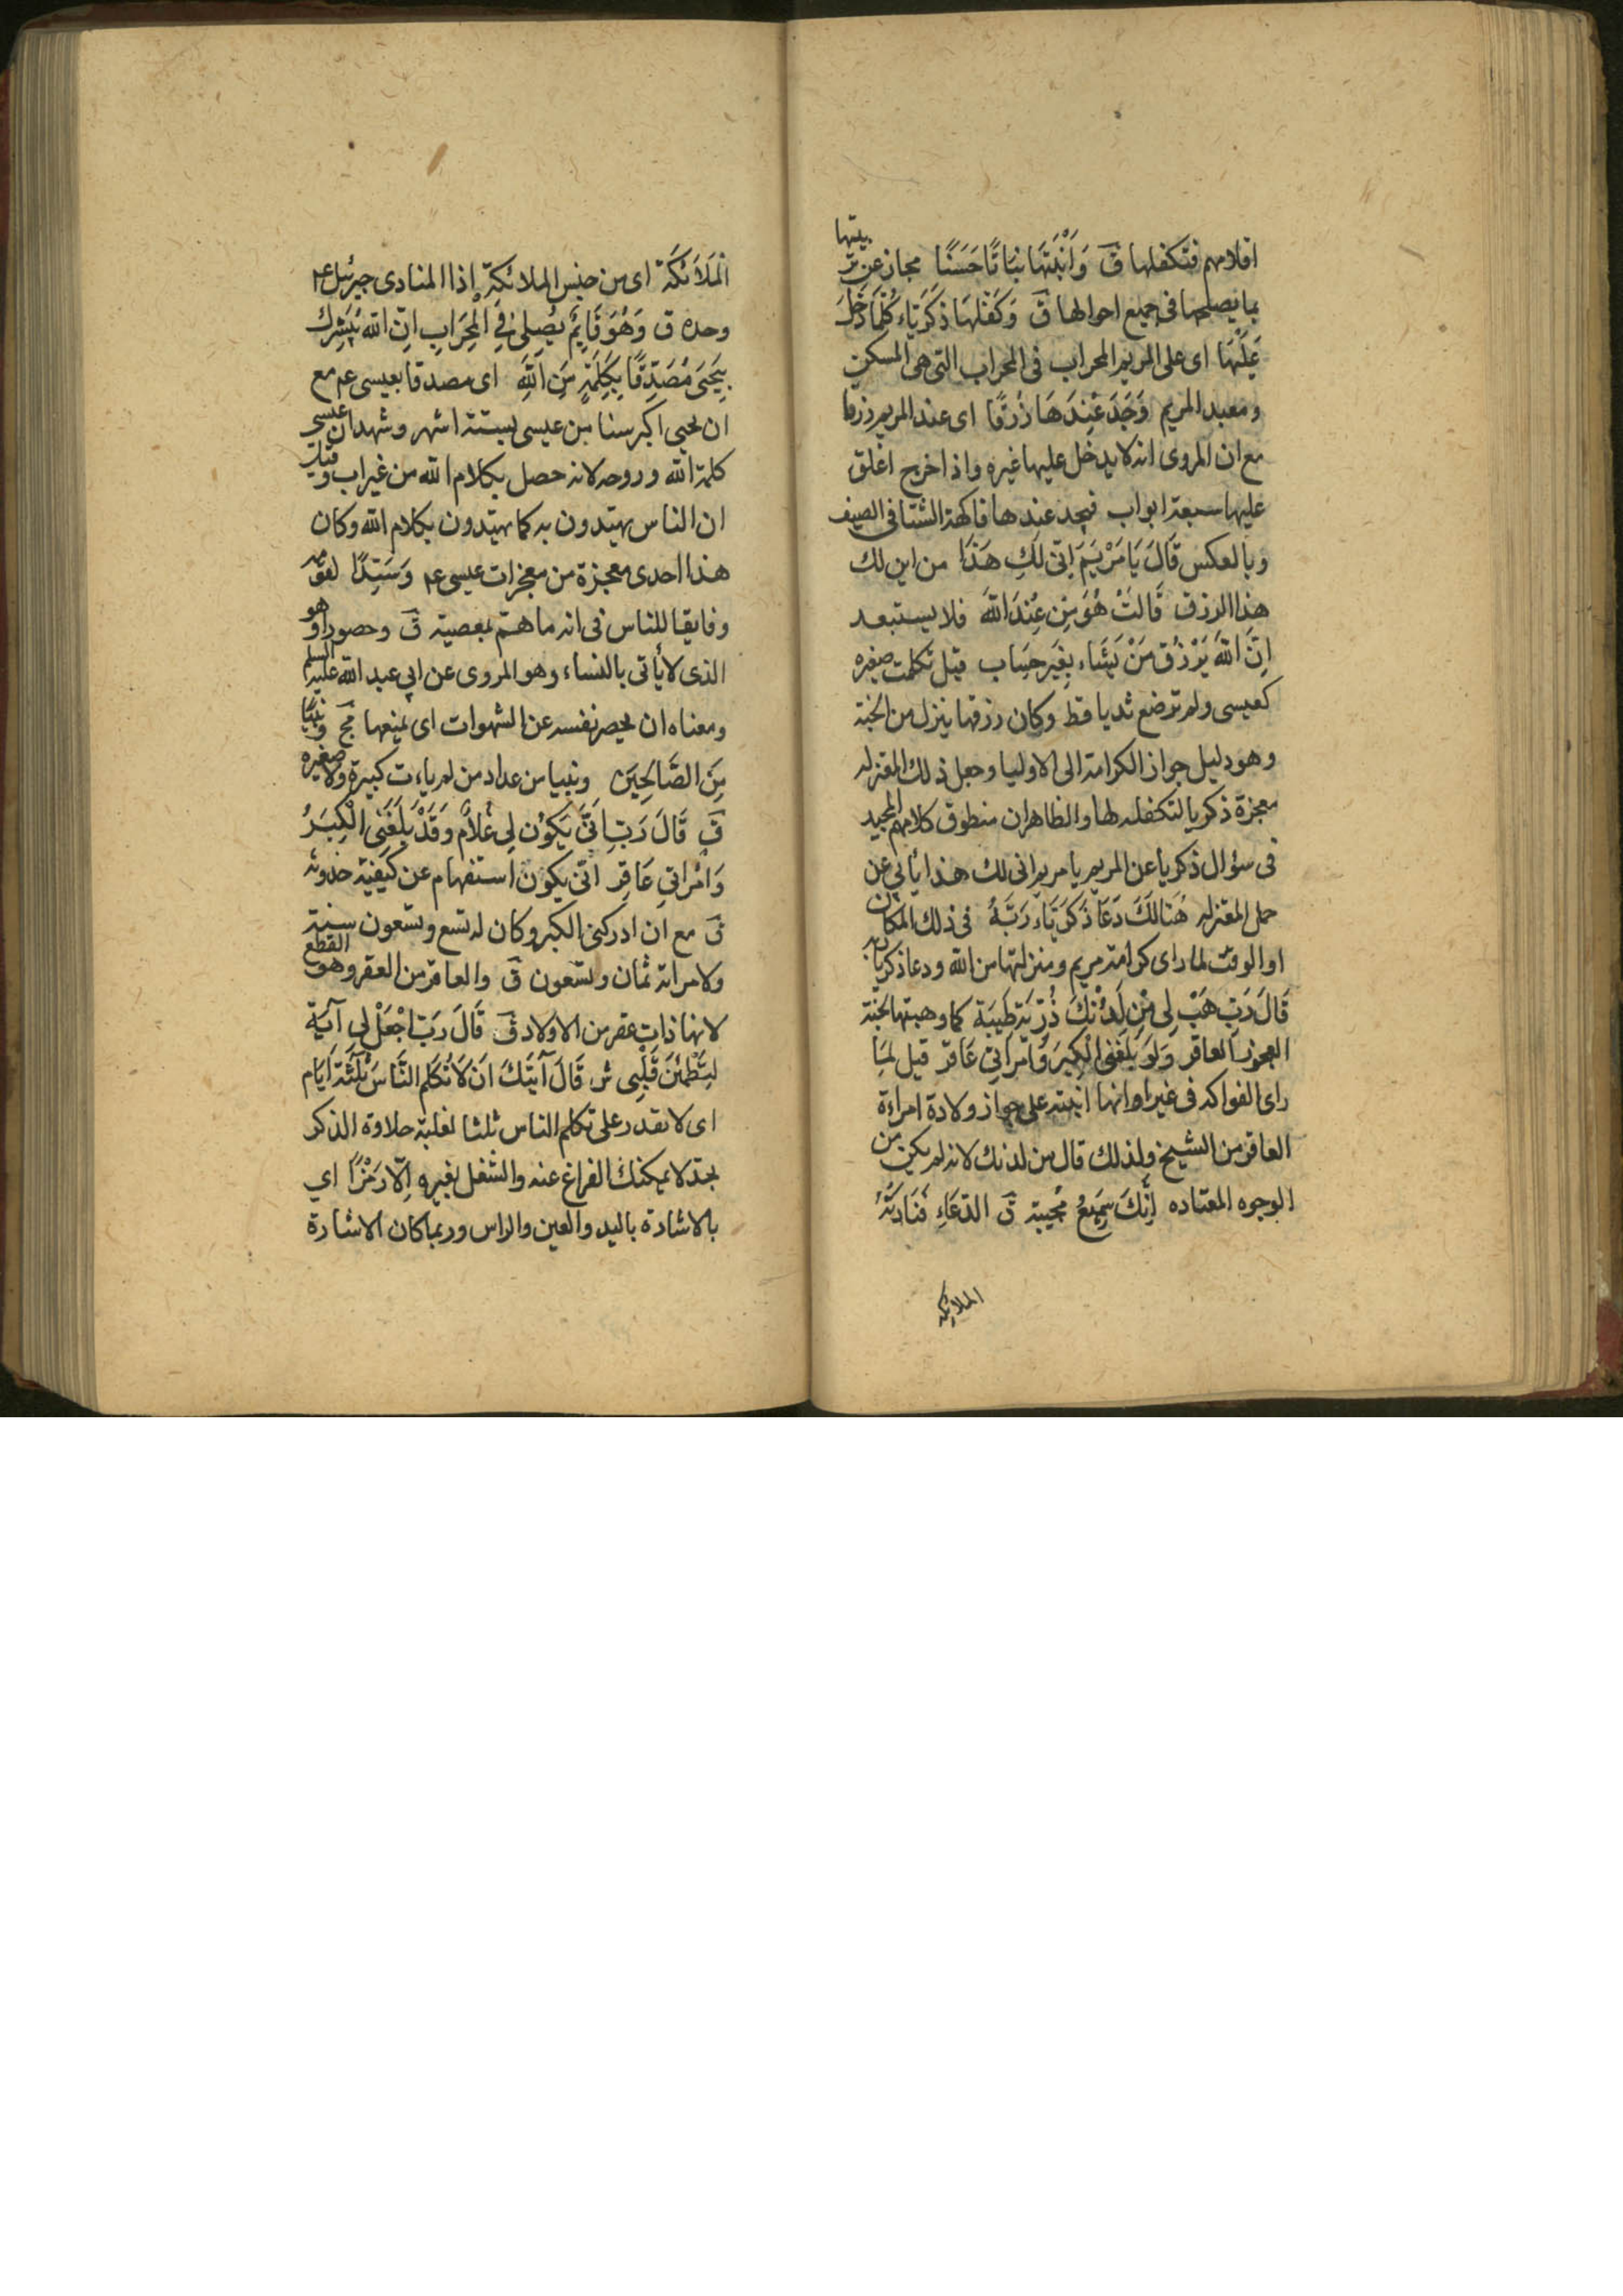 اقلامهم فتكفلها ق وَاَنْبَتَهَا نَبَاتًا حَسَنًا مجاز عن تربيتها
بما يصلحها فى جميع احوالها ق وَكَفَّلَهَا زَكَرِيَّاء كُلَّمَا دَخَلَ
عَلَيْهَا اى على المريم المحراب فى المحراب التى هى المسكن
ومعبد المريم وَجَدَ عِنْدَهَا رِزْقًا اى عند المريم رزقا
مع ان المروى انه لا يدخل عليها غيره واذا خرج اغلق
عليها سبعة ابواب فيجد عندها فاكهة الشتا فى الصيف
وبالعكس قَالَ يَا مَرْيَمَ اَنّى لَكِ هَذَا من اين لك
هذا الرزق قَالَتْ هُوَ مِنْ عِنْدَ اللّهَ فلا يستبعد
اِنَّ اللّهَ يَرْزُقُ مَنْ يَشَاء بِغَيْرِ حِسَاب قيل تكلمت صغيره
كعيسى ولم ترضع ثديا قط وكان رزقها ينزل من الجنة
وهو دليل جواز الكرامة الى الاوليا وجعل ذلك المعتزله
معجزة زكريا لتكفله لها والظاهر ان منطوق كلامهم المجيد
فى سؤال زكريا عن المريم يا مريم انى لك هذا يأبى عن
حمل المعتزله هُنَالِكَ دَعَا زَكَرِيَّاء رَبَّهُ فى ذلك المكان
او الوقت لما راى كرامة مريم ومنزلتها من الله ودعا زكريا ربه
قَالَ رَبِّ هَبْ لِى مِنْ لَدُنْكَ ذُرِّيَّةً طَيِّبَةً كما وهبتها لحنة
العجوز العاقر وَلَوْ بَلَغَنِى الْكِبَرَ وَامْرَاَتِى عَاقِرٌ قيل لمّا
راى الفواكه فى غير اوانها انتبه على جواز ولادة امراءة
العاقر من الشيخ ولذلك قال من لدنك لانه لم يكن من
الوجوه المعتاده اِنَّكَ سَمِيعُ مُجيبة ق الدّعَاءِ فَنَادَتْهُ
الملائكه
الْمَلَائكَة اى من جنس الملائكة اذا المنادى جبرئيل عم
وحده ق وَهُوَ قَايِمٌ يُصلى فِى الْمِحْرَابِ اِنّ الله يُبَشِّرك
بِيَحْيَى مُصَدِّقًا بِكَلِمَةٍ مِنَ اللّهِ اى مصدقا بعيسى عم مع
ان يحيى اكبر سنا من عيسى بستة اشهر وشهد ان عيسى
كلمة الله وروحه لانه حصل بكلام الله من غير اب وقيل
ان الناس يهتدون به كما يهتدون بكلام الله وكان
هذا احدى معجزة من معجزات عيسى عم وَسَيِّدًا لقومه
وفايقا للناس فى انه ما همّ بمعصية ق وحصورا وهو
الذى لا يأتى بالنساء وهو المروى عن ابى عبد الله عليه السلم
ومعناه ان يحصر نفسه عن الشهوات اى يمنعها مج ونَبِيًّا
مِنَ الصَّالِحِينَ ونبيا من عداد من لم ياءت كبيرة ولا صغيره
ق قَالَ رَبِّ اَنَّى يَكُونُ لِى غُلَامٌ وَقَدْ بَلَغَنِى الْكِبَرُ
وَامْرَاَتِى عَاقِر انّى يكون استفهام عن كيفية حدوثه
ق مع ان ادركنى الكبر وكان له تسع وتسعون سنة
ولامراته ثمان وتسعون ق والعاقر من العقر وهو القطع
لانها ذات عقر من الاولاد ق قَالَ رَبّ اجْعَلْ لِى آيَة
لِتَطْمَئِنَ قَلْبِى ش قَالَ آيَتُكَ اَنْ لَا تُكَلِّمَ النَّاسَ ثَلثَةَ اَيّام
اى لا تقدر على تكلم الناس ثلثا لغلبة حلاوة الذكر
بحدّ لا يمكنك الفراغ عنه والشغل بغيره اِلّا رَمْزًا اي
بالاشارة باليد والعين والراس وربما كان الاشارة